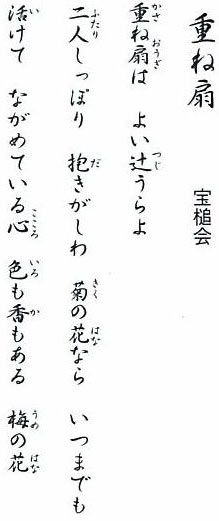 重ね扇　宝槌会
重ね扇は　よい辻うらよ
二人しっぽり　抱きがしわ　菊の花なら　いつまでも
活けて　ながめている心　色も香もある　梅の花